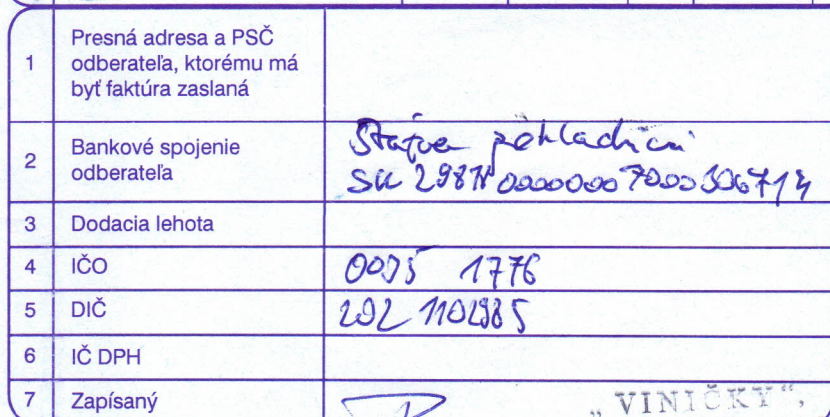 1 Presná adresa a PSČ
odberateľa, ktorému má
byť faktúra zaslaná
2 Bankové spojenie
odberateľa
Štátna pokladnica
3 Dodacia lehota
4 IČO 0005 1776
5 DIČ
6 IČ DPH
7 Zapísaný „VINIČKY“,